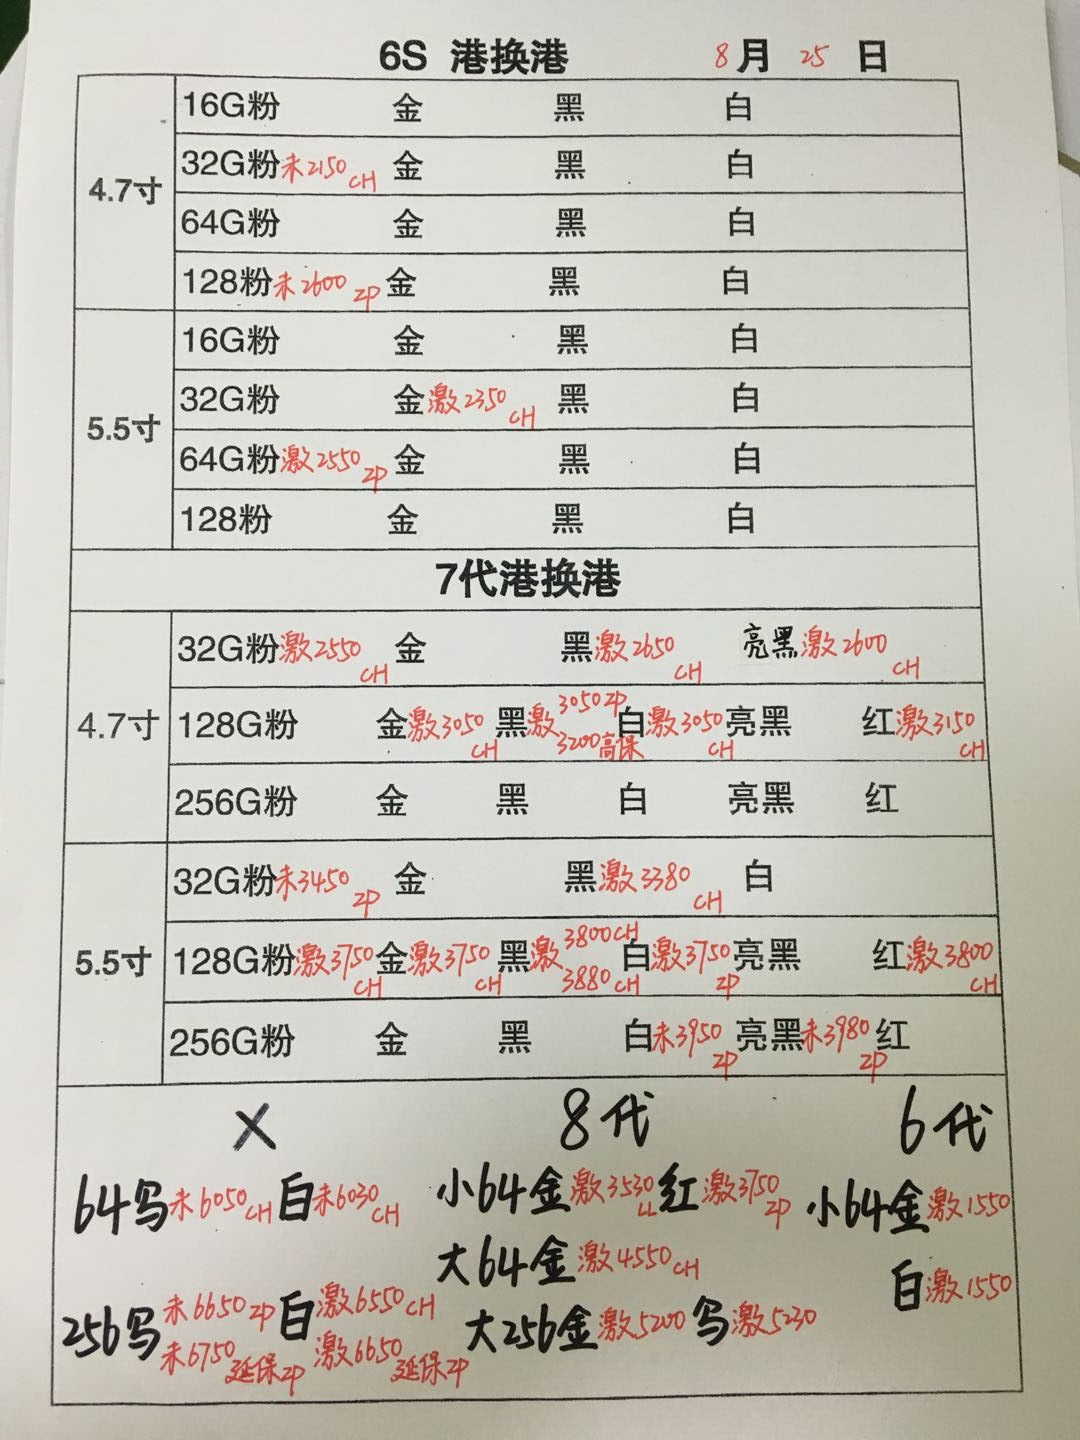 6S 港换港 8月25日
4.7寸
16G粉 金 黑 白
32G粉未2150CH 金 黑 白
64G粉 金 黑 白
128粉未2600ZP 金 黑 白
5.5寸
16G粉 金 黑 白
32G粉 金激2350CH 黑 白
64G粉激2550ZP 金 黑 白
128粉 金 黑 白
7代港换港
4.7寸
32G粉激2550CH 金 黑激2650CH 亮黑激2600CH
128G粉 金激3050CH 黑激3050ZP 3200高保 白激3050CH 亮黑 红激3150CH
256G粉 金 黑 白 亮黑 红
5.5寸
32G粉未3450ZP 金 黑激3380CH 白
128G粉激3750CH 金激3750CH 黑激3800CH 3880CH 白激3750ZP 亮黑 红激3800CH
256G粉 金 黑 白未3950ZP 亮黑未3980ZP 红
X 8代 6代
64乌未6050CH 白未6030CH 小64金激3530LL 红激3750ZP 小64金激1550
大64金激4550CH 白激1550
256乌未6650ZP 未6750延保ZP 白激6550CH 激6650延保ZP 大256金激5200 乌激5230